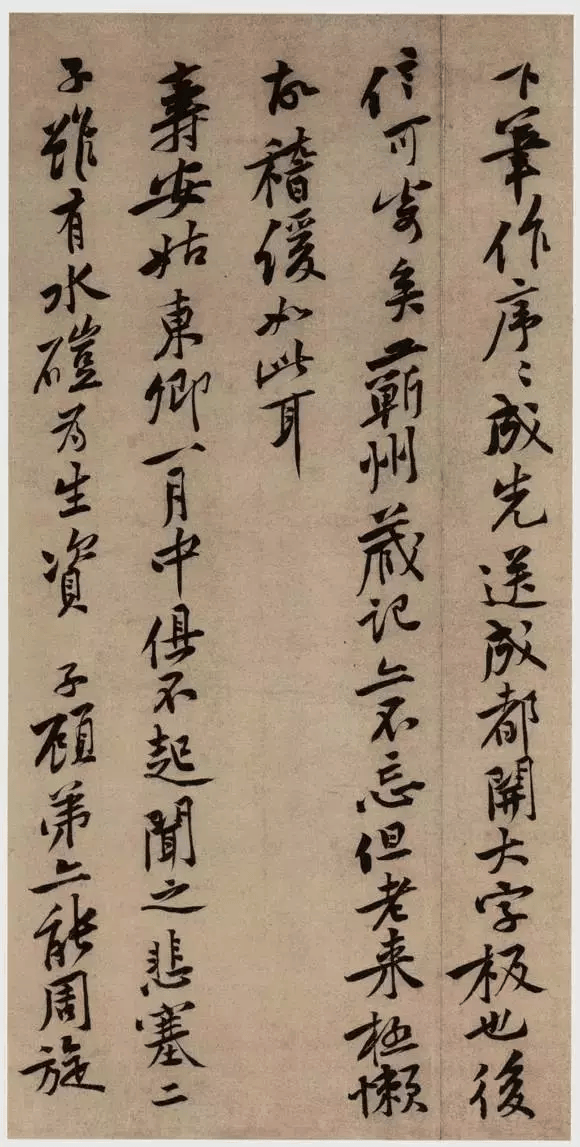 下筆作序〻成先送成都開大字板也後
信可寄矣蘄州藏記亦不忘但老来極懶
故稽緩如此耳
壽安姑東卿一月中俱不起聞之悲塞二
子雖有水磑為生資 子顧弟亦能周旋